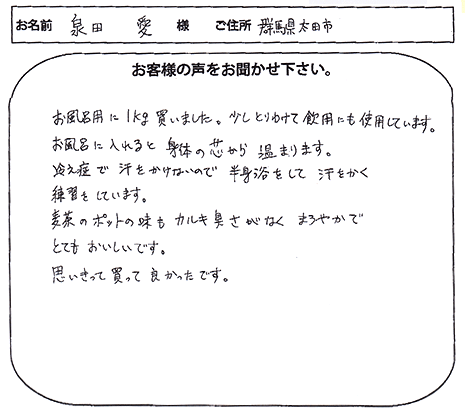 お名前 泉田 愛 様 ご住所 群馬県太田市
お客様の声をお聞かせ下さい。
お風呂用に1kg買いました。少しとりわけて飲用にも使用しています。
お風呂に入れると身体の芯から温まります。
冷え症で汗をかけないので半身浴をして汗をかく
練習をしています。
麦茶のポットの味もカルキ臭さがなくまろやかで
とてもおいしいです。
思いきって買って良かったです。